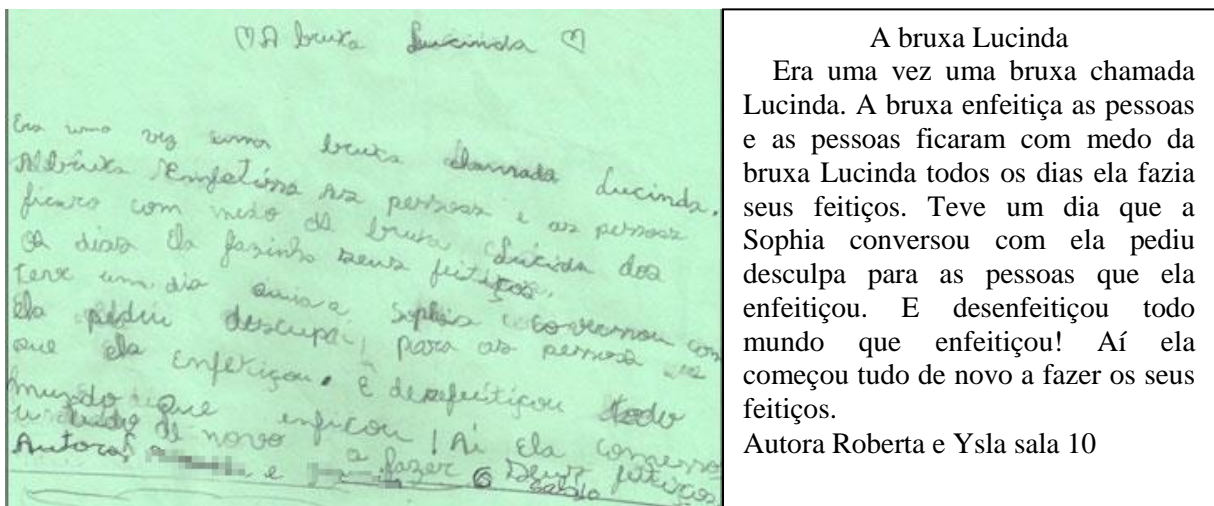 ♡ A bruxa Lucinda ♡
Era uma vez uma bruxa chamada Lucinda.
A bruxa Emfetissa as pessoas e as pessoas
ficaro com medo da bruxa Lucida dos
os dias Ela fasinho seus feitiços.
Teve um dia que a Sophia converssou com
Ela pediu descupa para as pessoas
que ela Enfetiçou. E desefeitiçou todo
mundo que enficou! Aí Ela comesso
tudo de novo a fazer o seus feitiços
Autora e salalo
A bruxa Lucinda
Era uma vez uma bruxa chamada
Lucinda. A bruxa enfeitiça as pessoas
e as pessoas ficaram com medo da
bruxa Lucinda todos os dias ela fazia
seus feitiços. Teve um dia que a
Sophia conversou com ela pediu
desculpa para as pessoas que ela
enfeitiçou. E desenfeitiçou todo
mundo que enfeitiçou! Aí ela
começou tudo de novo a fazer os seus
feitiços.
Autora Roberta e Ysla sala 10